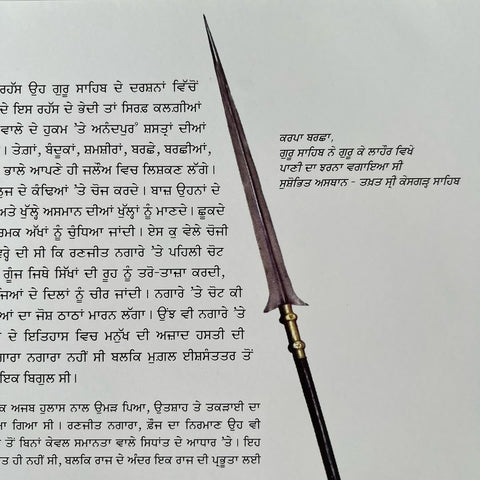 ਰਹੱਸ ਉਹ ਗੁਰੂ ਸਾਹਿਬ ਦੇ ਦਰਸ਼ਨਾਂ ਵਿੱਚੋਂ
ਦੇ ਇਸ ਰਹੱਸ ਦੇ ਭੇਦੀ ਤਾਂ ਸਿਰਫ਼ ਕਲਗੀਆਂ
ਵਾਲੇ ਦੇ ਹੁਕਮ 'ਤੇ ਅਨੰਦਪੁਰੋਂ ਸ਼ਸਤ੍ਰਾਂ ਦੀਆਂ
। ਤੇਗਾਂ, ਬੰਦੂਕਾਂ, ਸ਼ਮਸ਼ੀਰਾਂ, ਬਰਛੇ, ਬਰਛੀਆਂ,
ਭਾਲੇ ਆਪਣੇ ਹੀ ਜਲੌਅ ਵਿਚ ਲਿਸ਼ਕਣ ਲੱਗੇ।
ਦੇ ਕੰਢਿਆਂ 'ਤੇ ਚੋਜ ਕਰਦੇ। ਬਾਜ਼ ਉਹਨਾਂ ਦੇ
ਅਤੇ ਖੁੱਲ੍ਹੇ ਅਸਮਾਨ ਦੀਆਂ ਖੁੱਲ੍ਹਾਂ ਨੂੰ ਮਾਣਦੇ। ਛੂਕਦੇ
ਅੱਖਾਂ ਨੂੰ ਚੁੰਧਿਆ ਜਾਂਦੀ। ਏਸ ਕੁ ਵੇਲੇ ਚੋਜੀ
ਦੀ ਸੀ ਕਿ ਰਣਜੀਤ ਨਗਾਰੇ 'ਤੇ ਪਹਿਲੀ ਚੋਟ
ਗੂੰਜ ਜਿਥੇ ਸਿੱਖਾਂ ਦੀ ਰੂਹ ਨੂੰ ਤਰੋ-ਤਾਜ਼ਾ ਕਰਦੀ,
ਦੇ ਦਿਲਾਂ ਨੂੰ ਚੀਰ ਜਾਂਦੀ। ਨਗਾਰੇ 'ਤੇ ਚੋਟ ਕੀ
ਦਾ ਜੋਸ਼ ਠਾਠਾਂ ਮਾਰਨ ਲੱਗਾ। ਉਂਝ ਵੀ ਨਗਾਰੇ 'ਤੇ
ਦੇ ਇਤਿਹਾਸ ਵਿਚ ਮਨੁੱਖ ਦੀ ਅਜ਼ਾਦ ਹਸਤੀ ਦੀ
ਨਗਾਰਾ ਨਹੀਂ ਸੀ ਬਲਕਿ ਮੁਗ਼ਲ ਈਸ਼ਸੰਤਤਰ ਤੋਂ
ਇਕ ਬਿਗੁਲ ਸੀ।
ਅਜਬ ਹੁਲਾਸ ਨਾਲ ਉਮੜ ਪਿਆ, ਉਤਸ਼ਾਹ ਤੇ ਤਕੜਾਈ ਦਾ
ਗਿਆ ਸੀ। ਰਣਜੀਤ ਨਗਾਰਾ, ਫ਼ੌਜ ਦਾ ਨਿਰਮਾਣ ਉਹ ਵੀ
ਤੋਂ ਬਿਨਾਂ ਕੇਵਲ ਸਮਾਨਤਾ ਵਾਲੇ ਸਿਧਾਂਤ ਦੇ ਆਧਾਰ 'ਤੇ। ਇਹ
ਹੀ ਨਹੀਂ ਸੀ, ਬਲਕਿ ਰਾਜ ਦੇ ਅੰਦਰ ਇਕ ਰਾਜ ਦੀ ਪ੍ਰਭੂਤਾ ਲਈ
ਕਰਪਾ ਬਰਛਾ,
ਗੁਰੂ ਸਾਹਿਬ ਨੇ ਗੁਰੂ ਕੇ ਲਾਹੌਰ ਵਿਖੇ
ਪਾਣੀ ਦਾ ਝਰਨਾ ਵਗਾਇਆ ਸੀ
ਸੁਸ਼ੋਭਿਤ ਅਸਥਾਨ - ਤਖ਼ਤ ਸ੍ਰੀ ਕੇਸਗੜ੍ਹ ਸਾਹਿਬ